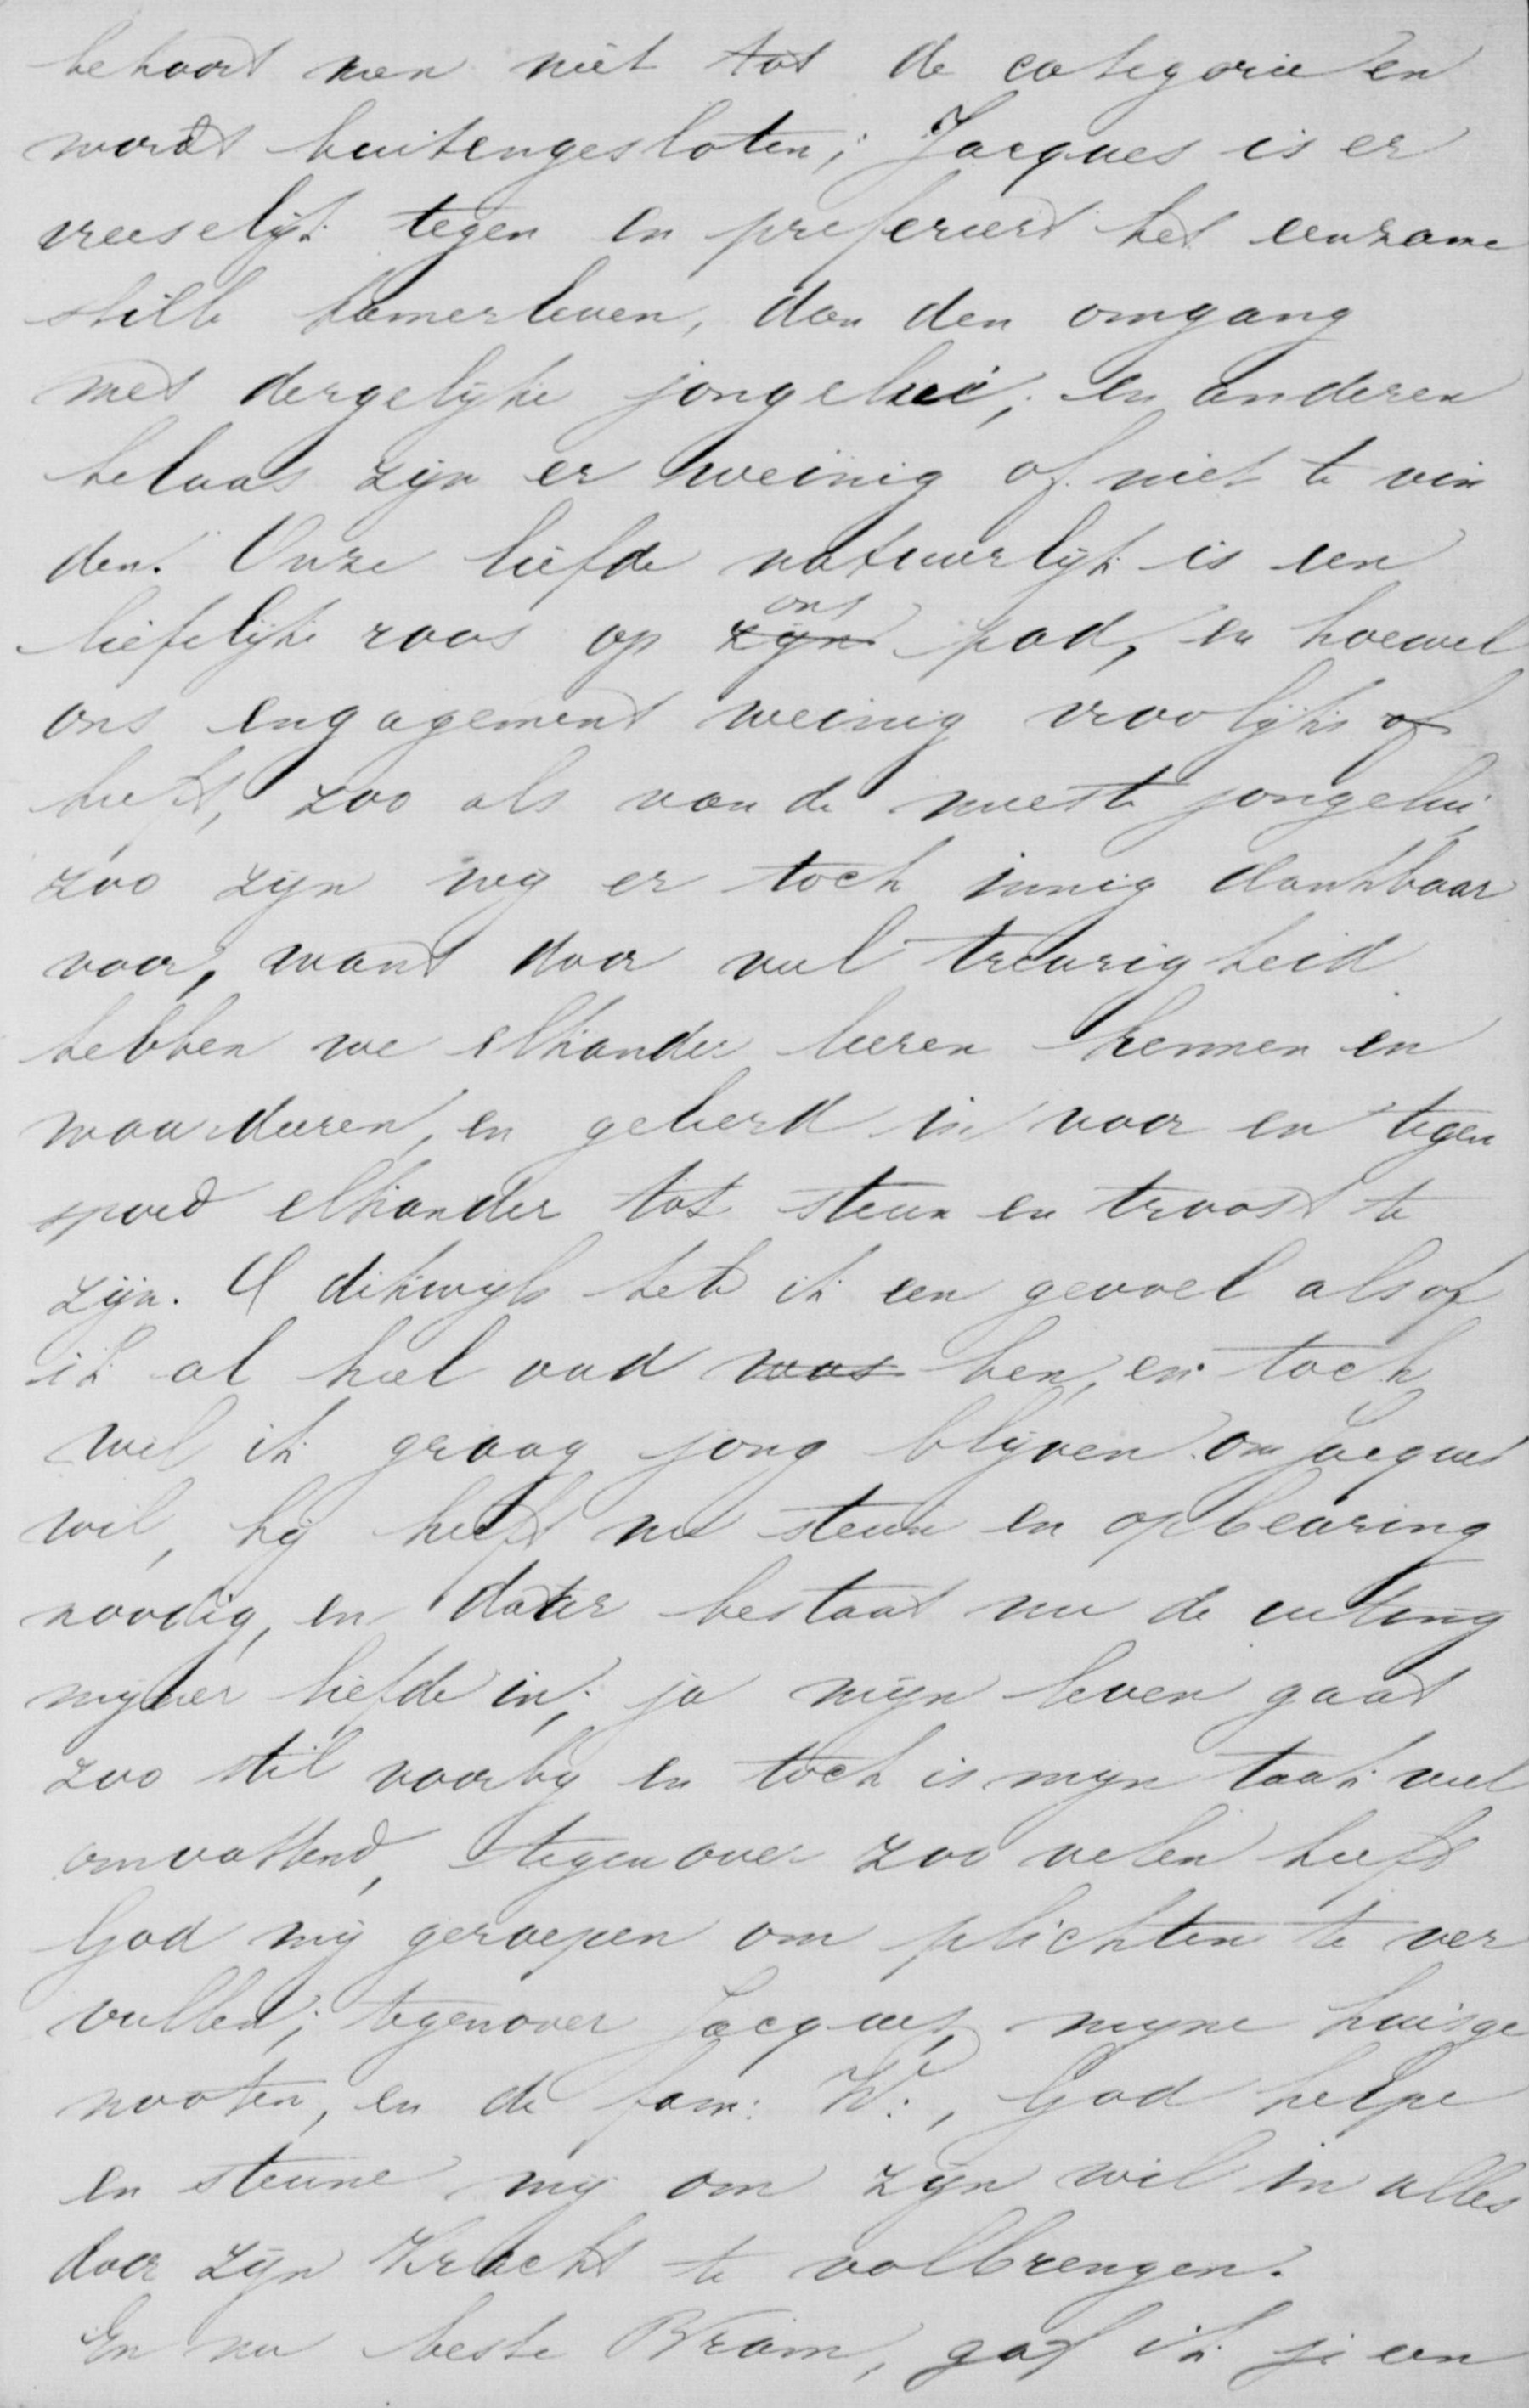 behoort men niet tot de categorie en
wordt buitengesloten; Jacques is er
vreeselijk tegen en prefereert het eenzame
stille kamerleven, dan den omgang
met dergelijke jongelui; en anderen
helaas zijn er weinig of niet te vin
den. Onze liefde natuurlijk is een
liefelijke roos op zijn ons pad, en hoewel
ons engagement weinig vroolijks of
heeft, zoo als van de meeste jongelui,
zoo zijn wij er toch innig dankbaar
voor, want door veel treurigheid
hebben we elkander leeren kennen en
waardeeren, en geleerd in voor en tegen
spoed elkander tot steun en troost te
zijn. O dikwijls heb ik een gevoel alsof
ik al heel oud was ben, en toch
wil ik graag jong blijven om Jacques
wil, hij heeft nu steun en opbeuring
noodig, en daar bestaat nu de uiting
mijner liefde in; ja mijn leven gaat
zoo stil voorbij en toch is mijn taak veel
omvattend, tegenover zoo velen heeft
God mij geroepen om plichten te ver
vullen; tegenover Jacques, mijne huisge
nooten, en de fam: W:, God helpe
en steune mij om zijn wil in alles
door zijn kracht te volbrengen.
En nu beste Bram, gaf ik je een